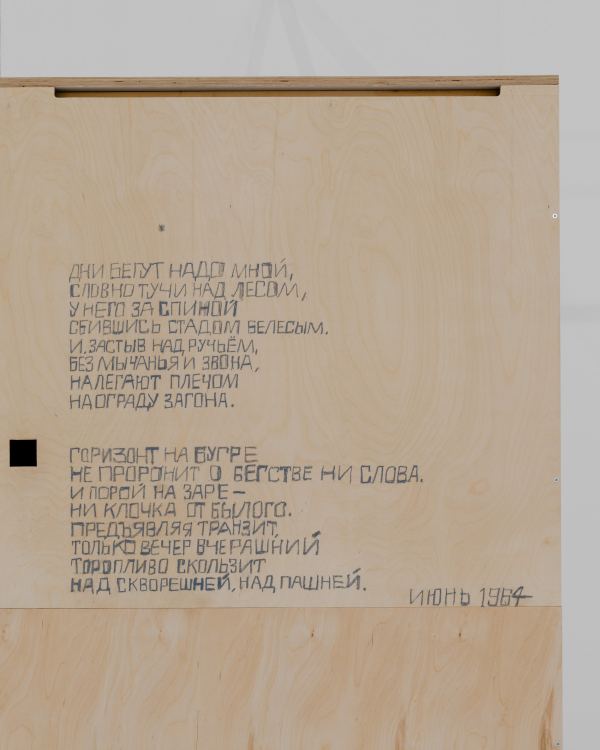 ДНИ БЕГУТ НАДО МНОЙ,
СЛОВНО ТУЧИ НАД ЛЕСОМ,
У НЕГО ЗА СПИНОЙ
СБИВШИСЬ СТАДОМ БЕЛЕСЫМ.
И, ЗАСТЫВ НАД РУЧЬЁМ,
БЕЗ МЫЧАНЬЯ И ЗВОНА,
НАЛЕГАЮТ ПЛЕЧОМ
НА ОГРАДУ ЗАГОНА.
ГОРИЗОНТ НА БУГРЕ
НЕ ПРОРОНИТ О БЕГСТВЕ НИ СЛОВА.
И ПОРОЙ НА ЗАРЕ —
НИ КЛОЧКА ОТ БЫЛОГО.
ПРЕДЪЯВЛЯЯ ТРАНЗИТ,
ТОЛЬКО ВЕЧЕР ВЧЕРАШНИЙ
ТОРОПЛИВО СКОЛЬЗИТ
НАД СКВОРЕШНЕЙ, НАД ПАШНЕЙ.
ИЮНЬ 1964